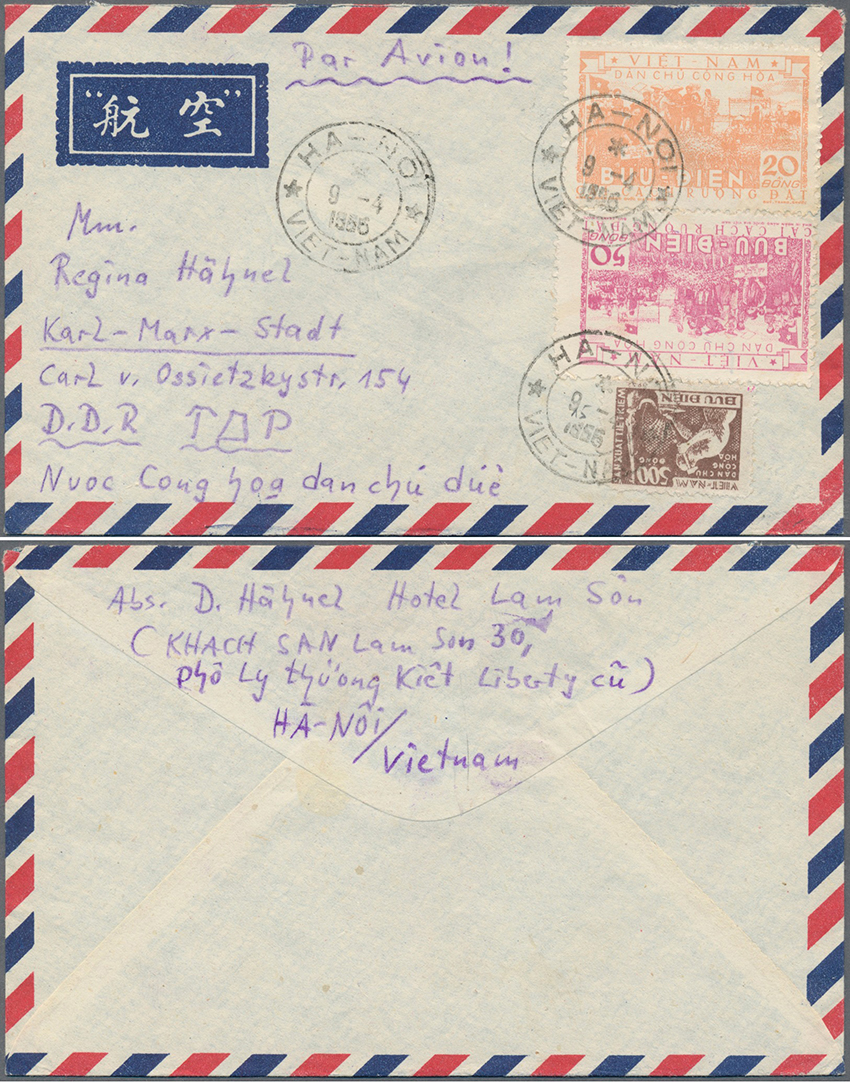 Par Avion!
"航空"
VIỆT-NAM
DÂN CHỦ CỘNG HÒA
20
ĐỒNG
BƯU-ĐIỆN
RUỘNG ĐẤT
HA-NOI
9-4
1956
VIET-NAM
HA-NOI
9-4
1956
VIET-NAM
Mm.
Regina Hähnel
Karl-Marx-Stadt
Carl v. Ossietzkystr. 154
D.D.R ГДР
Nuoc Cong hoa dan chú dúè
CẢI CÁCH
BƯU-ĐIỆN
50
ĐỒNG
DÂN CHỦ CỘNG HÒA
VIỆT-NAM
HA-N
9
1956
VIET-NA
BƯU ĐIỆN
XUẤT TIẾT KIỆM
500
ĐỒNG
VIỆT-NAM
DÂN CHỦ
CỘNG
HÒA
Abs. D. Hähnel Hotel Lam Sôn
(KHACH SAN Lam Son 30,
phô Ly thúong Kiêt Liberty cũ)
HÀ-NÔi/
Vietnam